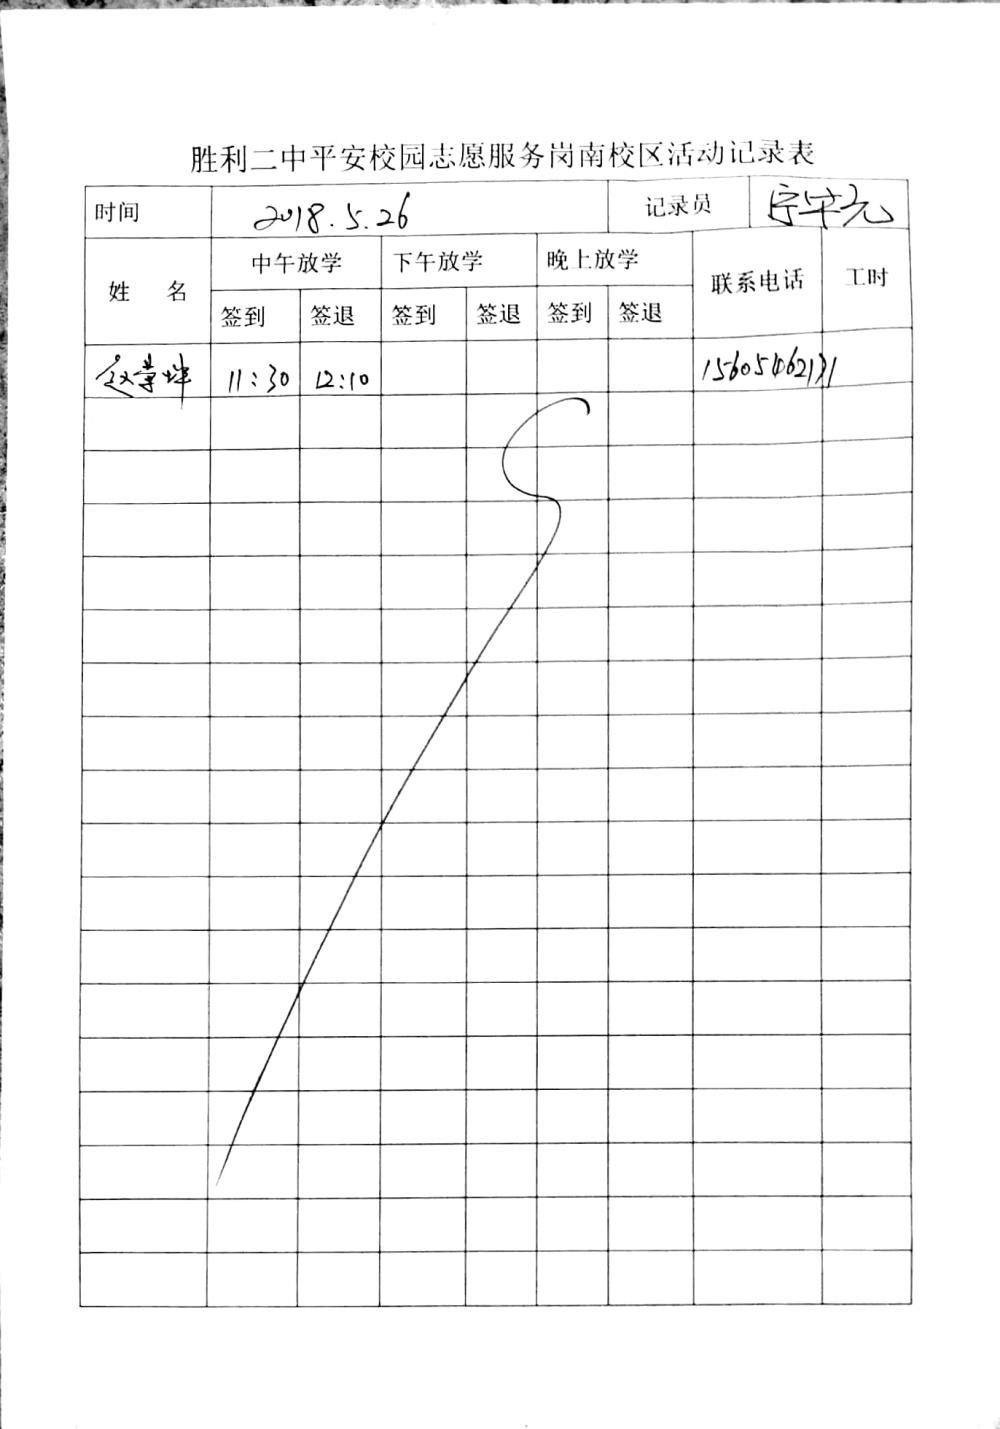 胜利二中平安校园志愿服务岗南校区活动记录表
时间 2018.5.26 记录员
中午放学 下午放学 晚上放学
姓 名 联系电话 工时
签到 签退 签到 签退 签到 签退
11:30 12:10